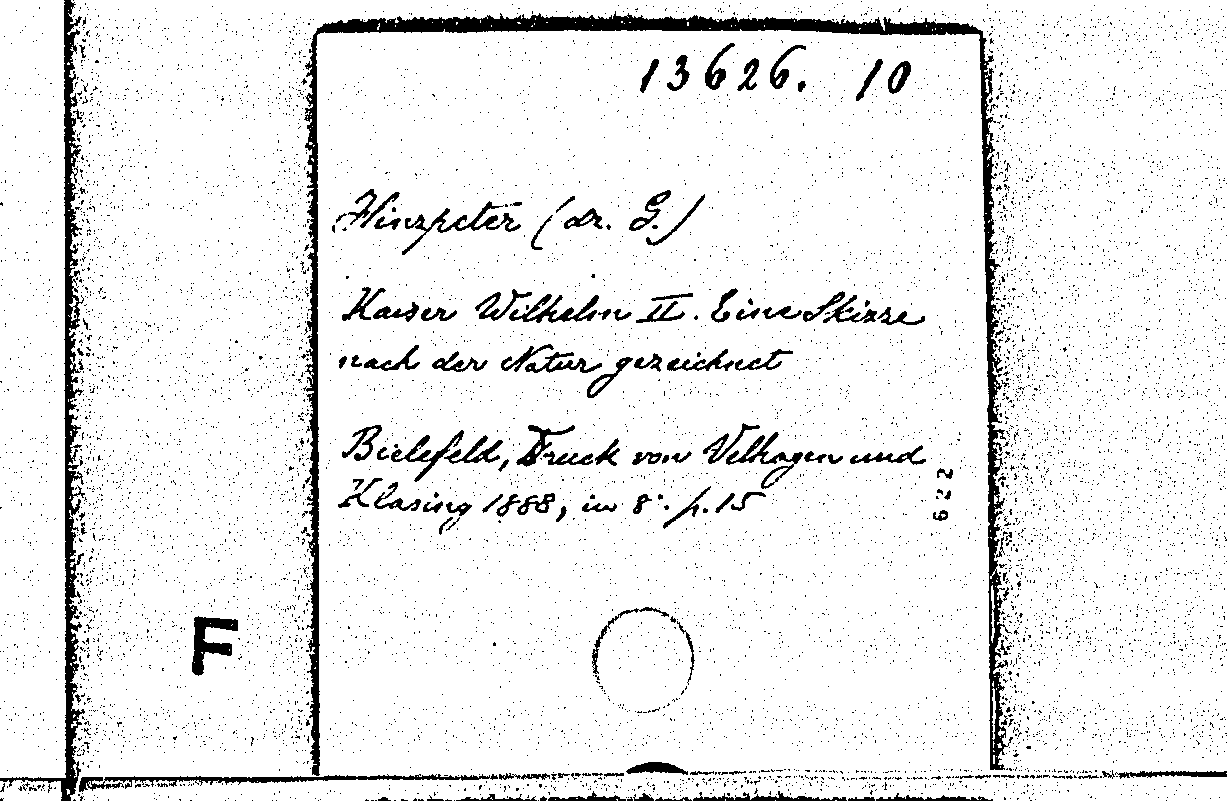 13626. 10
Hinzpeter (dr. G.)
Kaiser Wilhelm II. Eine Skizze
nach der Natur gezeichnet
Bielefeld, Druck von Velhagen und
Klasing 1888, in 8°. p. 15
622
F